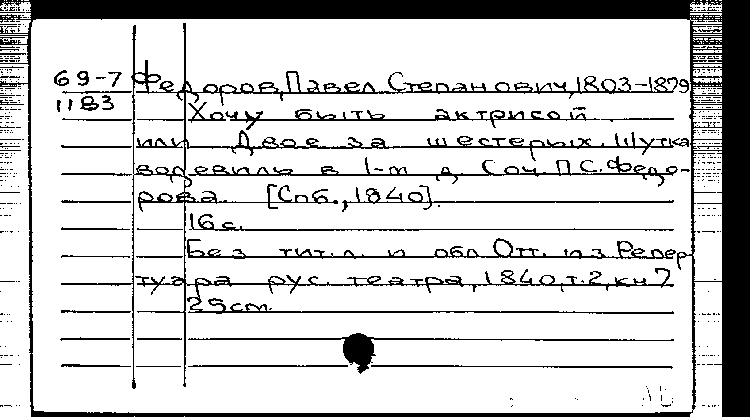 69-7 Федоров, Павел Степанович, 1803-1879
1183 Хочу быть актрисой
или Двое за шестерых. Шутка
водевиль в 1-м д. Соч. П.С. Федо-
рова. [Спб., 1840].
16 с.
Без тит. л. и обл. Отт. из Репер-
туара рус. театра, 1840, т. 2, кн 7
25 см.